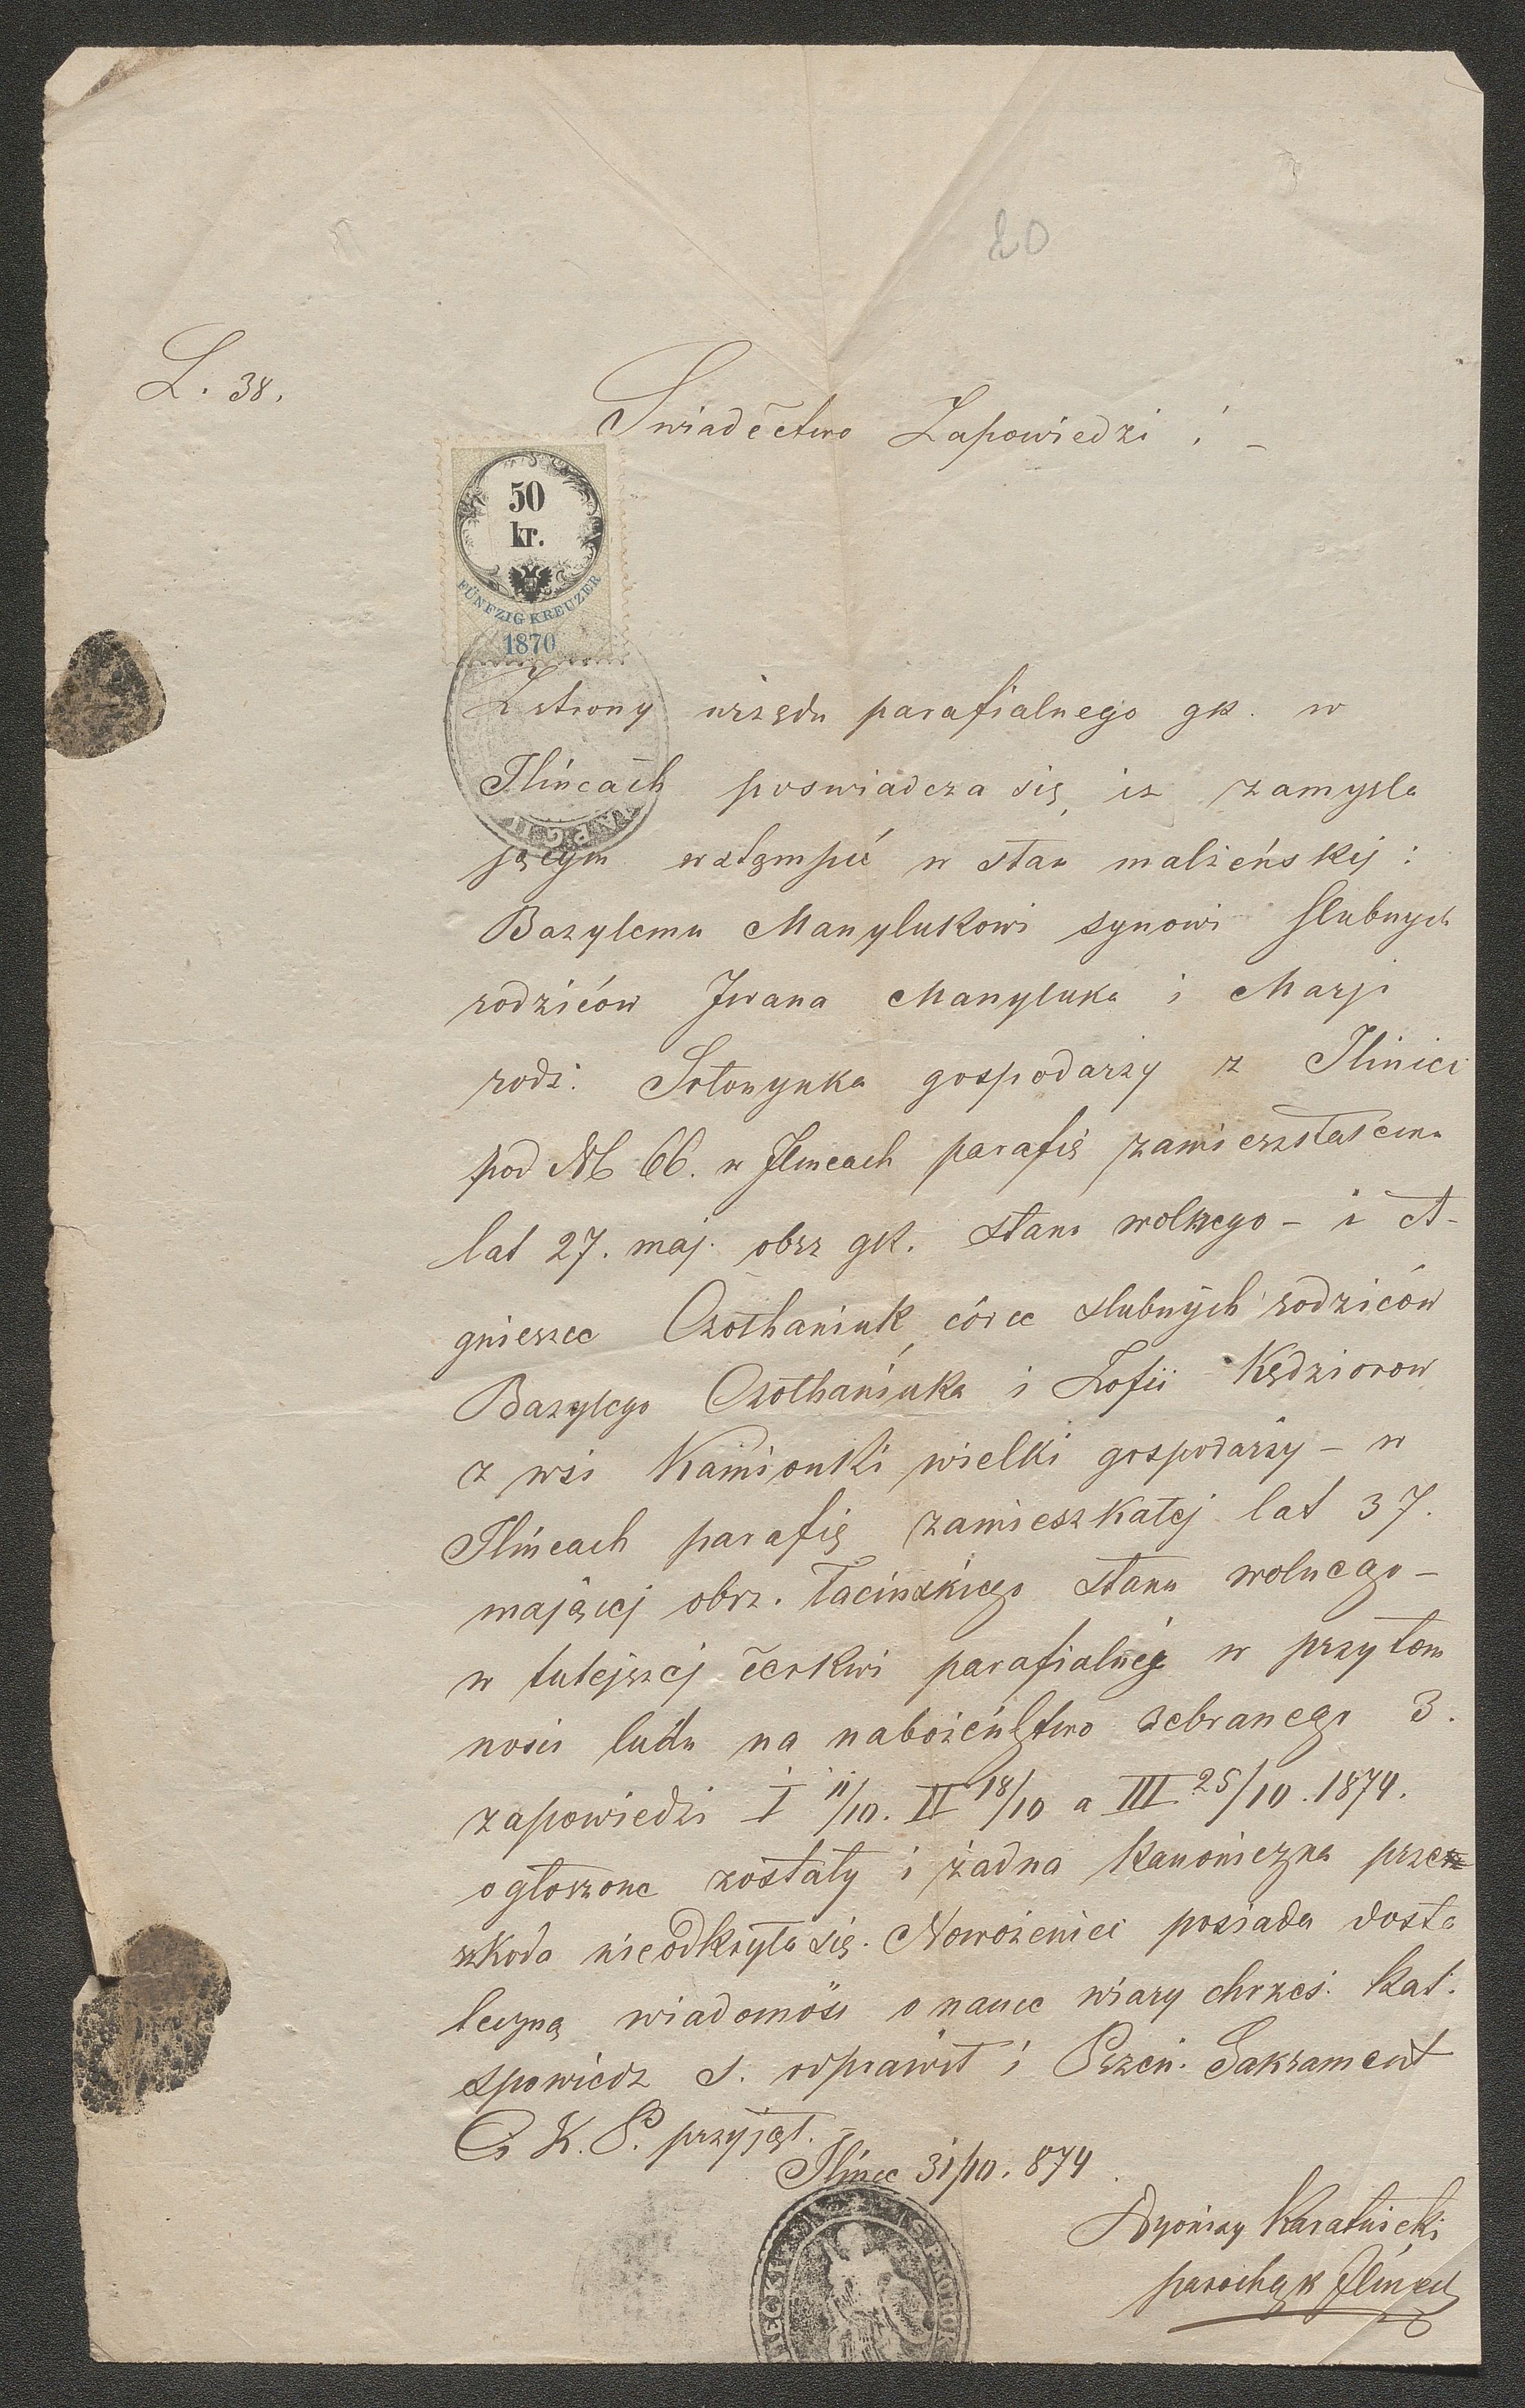 20
L. 38.
Swiadectwo Zapowiedzi i -
50
kr.
FÜNFZIG KREUZER
1870
Z strony urzędu parafialnego gk. w
Ilincach poswiadcza się, iz zamysla
jącym wstąmpić w stan malżeńskij:
Bazylemu Manylukowi synowi slubnych
rodziców Iwana Manyluka i Marji
rodz. gospodarzy z Ilinici
pod № 66. w Ilincach parafię
lat 27. maj. obrz gk. stanu wolnego - i A-
gnieszce Czothaniuk córce slubnych rodziców
Bazylego Czothaniuka i Zofii Kędziorow
z wsi Kamionki wielki gospodarzy - w
Ilincach parafię zamieszkałej lat 37.
mającej obrz. łacinskiego stanu wolnego -
w tutejszej cerkwi parafialnéj w przytom
nosci ludu na nabożeństwo zebranego 3.
zapowiedzi I 11/10. II 18/10 a III 25/10. 1874.
ogłoszone zostały i żadna kanoniczna prze
szkoda nieodkryła się. Nowożeniec posiada dosta
teczną wiadomość o nauce wiary chrześ. kat.
spowiedz s. odprawił i Przen. Sakrament
C. K. P. przyjął.
Ilince 31/10. 874
Dyonizy Karatnicki
paroch gk Ilincach